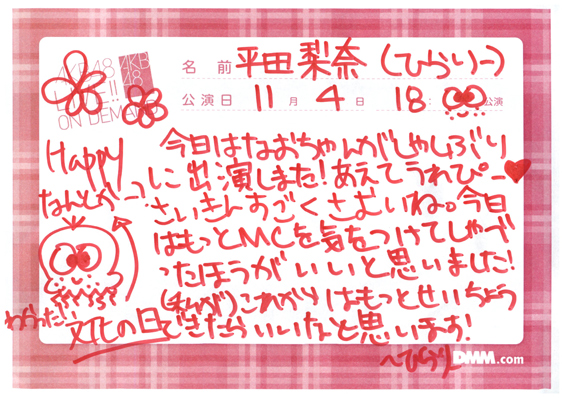 AKB48
LIVE!!
ON DEMAND
AKB
48
名前 平田梨奈（ひらりー）
公演日 11月4日 18:00公演
Happy
なんとかー
今日はなおちゃんがひさしぶり
に出演しました！あえてうれぴー♥
さいきんすごくさむいね。今日
はもっとMCを気をつけてしゃべ
ったほうがいいと思いました！
(私が)これからはもっとせいちょう
できたらいいなと思います！
文化の日
〜ひらり
DMM.com